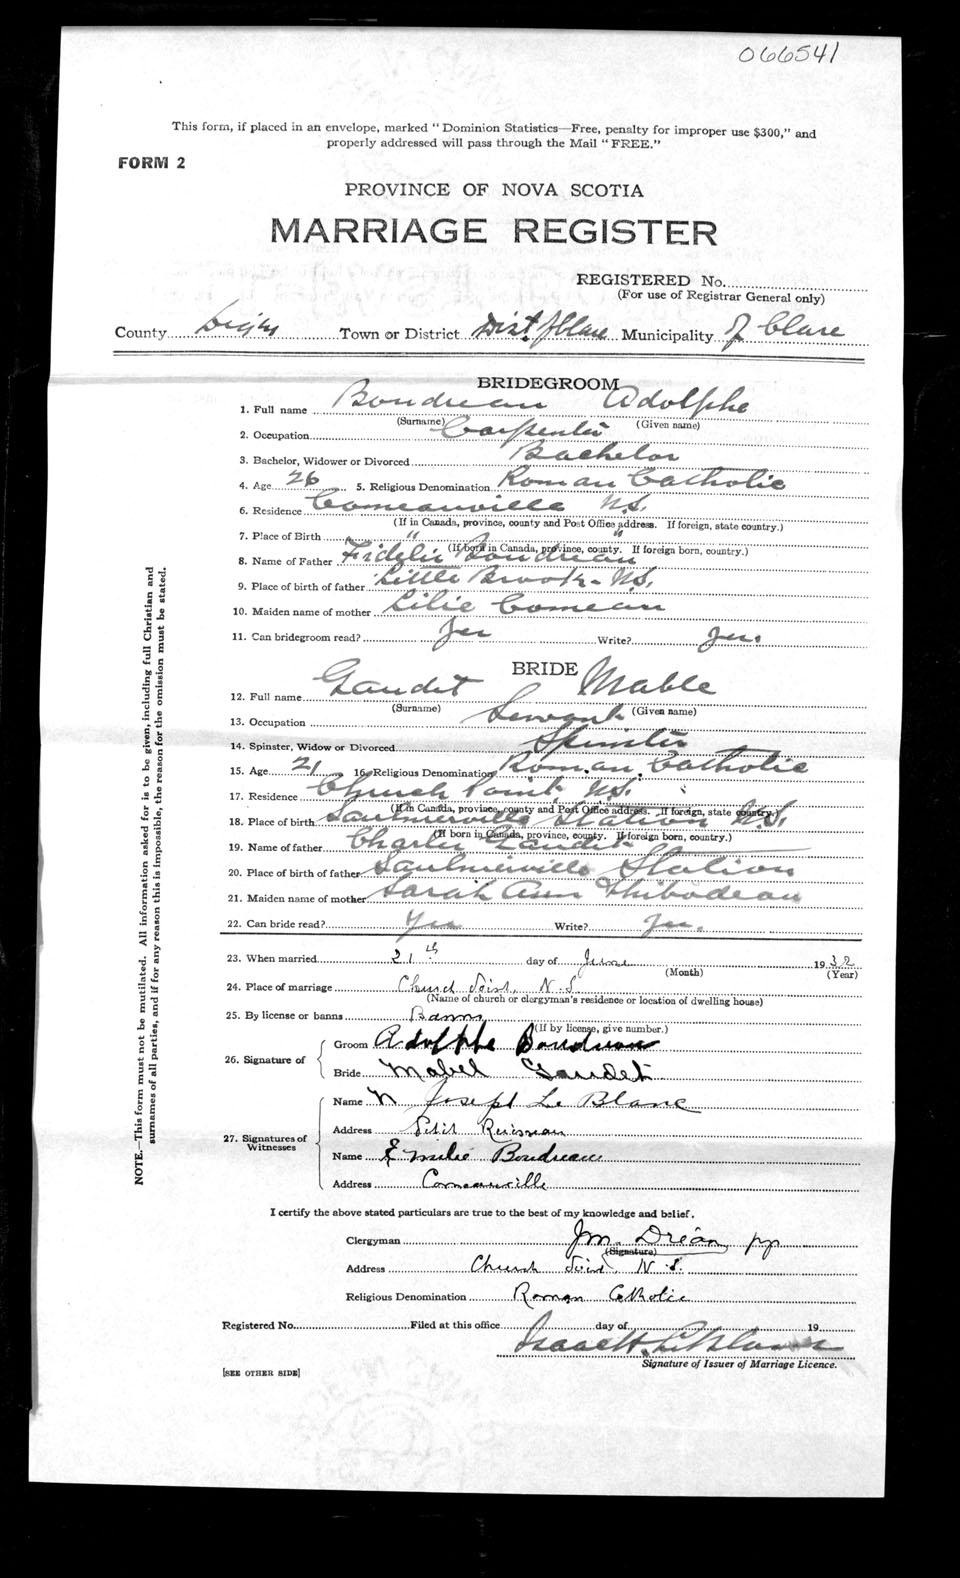 066541
This form, if placed in an envelope, marked "Dominion Statistics—Free, penalty for improper use $300," and
properly addressed will pass through the Mail "FREE."
FORM 2
PROVINCE OF NOVA SCOTIA
MARRIAGE REGISTER
REGISTERED No.
(For use of Registrar General only)
County Digby Town or District Dist. of Clare Municipality of Clare
BRIDEGROOM
1. Full name Boudreau Adolphe
(Surname) (Given name)
2. Occupation Carpenter
3. Bachelor, Widower or Divorced Bachelor
4. Age 26 5. Religious Denomination Roman Catholic
6. Residence Comeauville N.S.
(If in Canada, province, county and Post Office address. If foreign, state country.)
7. Place of Birth " "
(If born in Canada, province, county. If foreign born, country.)
8. Name of Father Fidele Boudreau
9. Place of birth of father Little Brook - N.S.
10. Maiden name of mother Lilie Comeau
11. Can bridegroom read? Yes Write? Yes.
BRIDE
12. Full name Gaudet Mable
(Surname) (Given name)
13. Occupation Servant
14. Spinster, Widow or Divorced Spinster
15. Age 21 16. Religious Denomination Roman Catholic
17. Residence Church Point N.S.
(If in Canada, province, county and Post Office address. If foreign, state country.)
18. Place of birth Saulnierville Station N.S.
(If born in Canada, province, county. If foreign born, country.)
19. Name of father Charles Gaudet
20. Place of birth of father Saulnierville Station
21. Maiden name of mother Sarah Ann Thibodeau
22. Can bride read? Yes Write? Yes.
23. When married 21th day of June 1932
(Month) (Year)
24. Place of marriage Church Point, N.S.
(Name of church or clergyman's residence or location of dwelling house)
25. By license or banns Banns
(If by license, give number.)
26. Signature of
Groom Adolphe Boudreau
Bride Mabel Gaudet
27. Signatures of Witnesses
Name N Joseph Le Blanc
Address Petit Ruisseau
Name Emilie Boudreau
Address Comeauville
I certify the above stated particulars are true to the best of my knowledge and belief.
Clergyman Jm. Dréan pp
(Signature)
Address Church Point N.S.
Religious Denomination Roman Catholic
Registered No. Filed at this office day of 19
Isaac H. LeBlanc
Signature of Issuer of Marriage Licence.
[SEE OTHER SIDE]
NOTE.—This form must not be mutilated. All information asked for is to be given, including full Christian and
surnames of all parties, and if for any reason this is impossible, the reason for the omission must be stated.